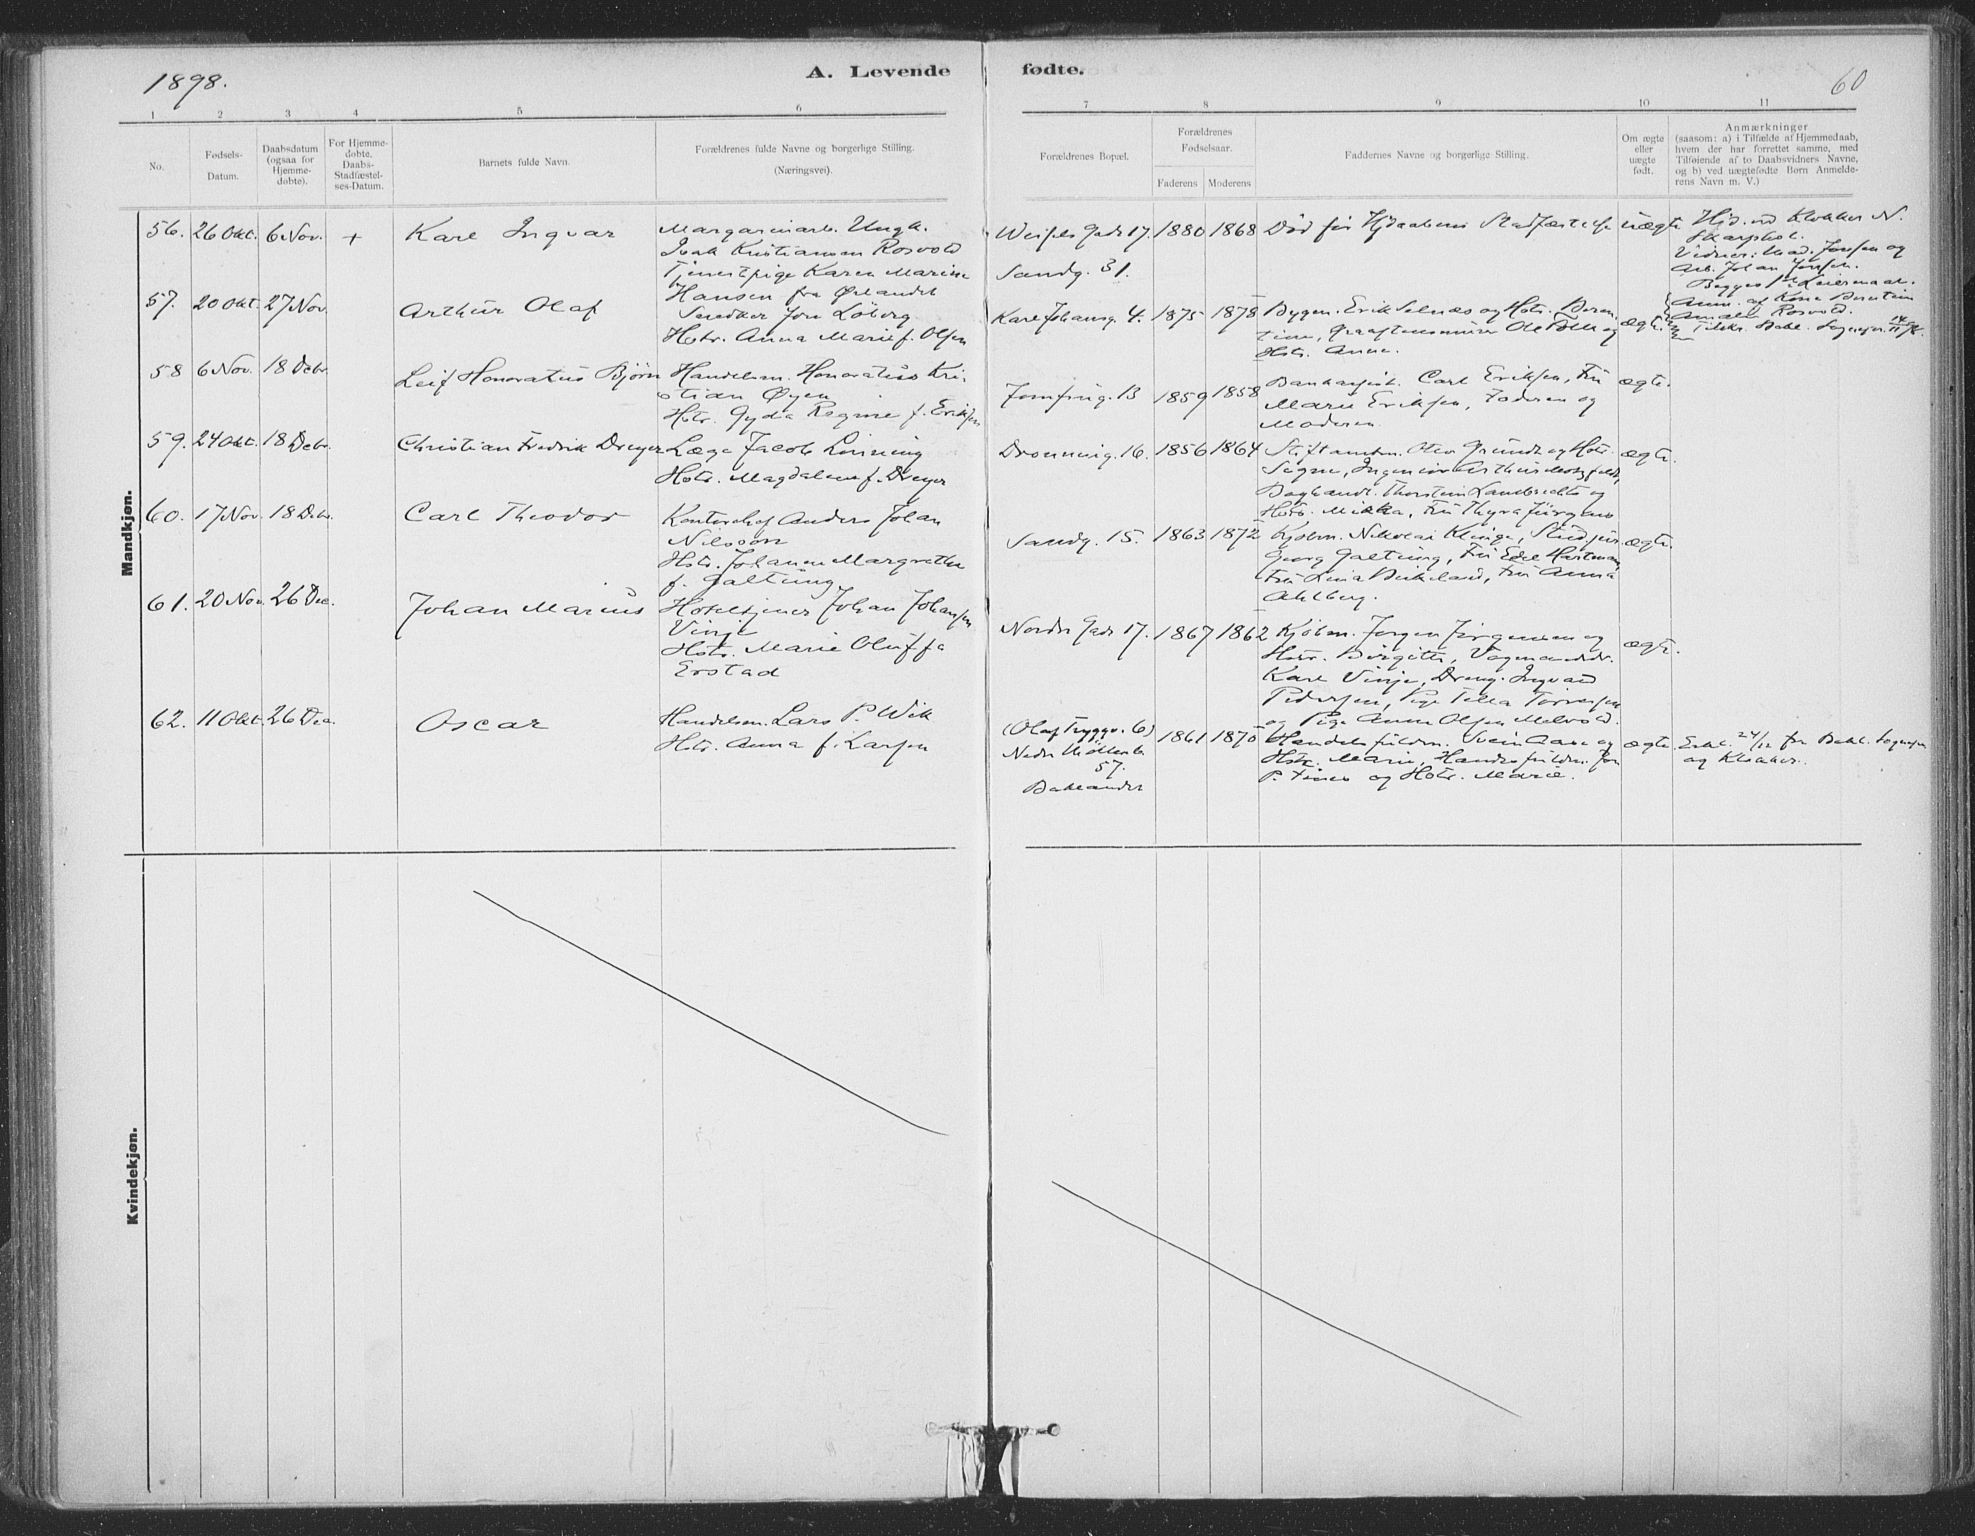 1898.
A. Levende
fødte.
60
1 2 3 4 5 6
7 8 9 10 11
No.
Fødsels-
Datum.
Daabsdatum
(ogsaa for
Hjemme-
døbte).
For Hjemme-
døbte.
Daabs-
Stadfæstel-
ses-Datum.
Barnets fulde Navn.
Forældrenes fulde Navne og borgerlige Stilling.
(Næringsvei).
Forældrenes Bopæl.
Forældrenes
Fødselsaar.
Faderens
Moderens
Faddernes Navne og borgerlige Stilling.
Om ægte
eller
uægte
født.
Anmærkninger
(saasom: a) i Tilfælde af Hjemmedaab,
hvem der har forrettet samme, med
Tilføiende af to Daabsvidners Navne,
og b) ved uægtefødte Børn Anmelde-
rens Navn m. V.)
Mandkjøn.
56. 26 Okt. 6 Nov. + Karl Ingvar
Margarinarb. Ungk.
Isak Kristiansen Rosvold
Tjenestpige Karen Marine
Hansen fra Ørlandet
Weisels Gade 17. 1880 1868
Sandg. 31.
Død før Hjdaabens Stadfæstelse uægte
Hjd. ved Klokker N.
Skarpholt.
Vidner: Mad. Jensen og
Arb. Johan Jensen.
Begges 1ste Leiermaal.
Anm. af Kone Berntine
Amalie Rosvold.
57. 20 Okt. 27 Nov. Arthur Olaf
Snedker Jon Löberg
Hstr. Anna Marie f. Olsen
Karl Johansg. 4. 1875 1878
Bygm. Erik Selnæs og Hstr. Beren-
tine, Ole Bolle og
Hstr. Anna.
ægte.
58 6 Nov. 18 Debr. Leif Honoratus Bjørn
Handelsm. Honoratus Kri-
stian Øyen
Hstr. Gyda Regine f. Eriksen
Jomfrug. 13 1859 1858
Carl Eriksen, Fru
Marie Eriksen, Faderen og
Moderen.
ægte.
59. 24 Okt. 18 Debr. Christian Fredrik Dreyer
Læge Jacob Linning
Hstr. Magdalene f. Dreyer
Dronning. 16. 1856 1864
Stiftamtm. Grundt og Hstr.
Signe, Ingeniør Arthur Motzfeldt,
Boghandl. Thorstein Lambrechts og
Hstr. Mikka, Fru Thyra Jürgens
ægte.
60. 17 Nov. 18 Debr. Carl Theodor
Kontorchef Anders Johan
Nilsson
Hstr. Johanne Margrethe
f. Galtung
Sandg. 15. 1863 1872
Kjøbm. Nikolai Klinge, Stud. jur.
Georg Galtung, Fru Edel Hartman,
Fru Lina Birkeland, Fru Anna
Ahlberg.
ægte.
61. 20 Nov. 26 Dec. Johan Marius
Hoteltjener Johan Johansen
Vinje
Hstr. Marie Oluffa
Erstad
Nordre Gade 17. 1867 1862
Kjøbm. Jørgen Jørgensen og
Hstr. Birgitte,
Karl Vinje, Dreng. Ingvald
Pedersen, Pige Tilla
og Pige Anna Olsen Melvold.
ægte.
62. 11 Okt. 26 Dec. Oscar
Handelsm. Lars P. Wik
Hstr. Anna f. Larsen
(Olaf Tryggv. 6)
Nedre Møllenb.
57.
Baklandet
1861 1870
Svein Aase og
Hstr. Marie, Jon
P. og Hstr. Marie.
ægte.
24/12 fra Bakl. Sognepr.
og Klokker.
Kvindekjøn.